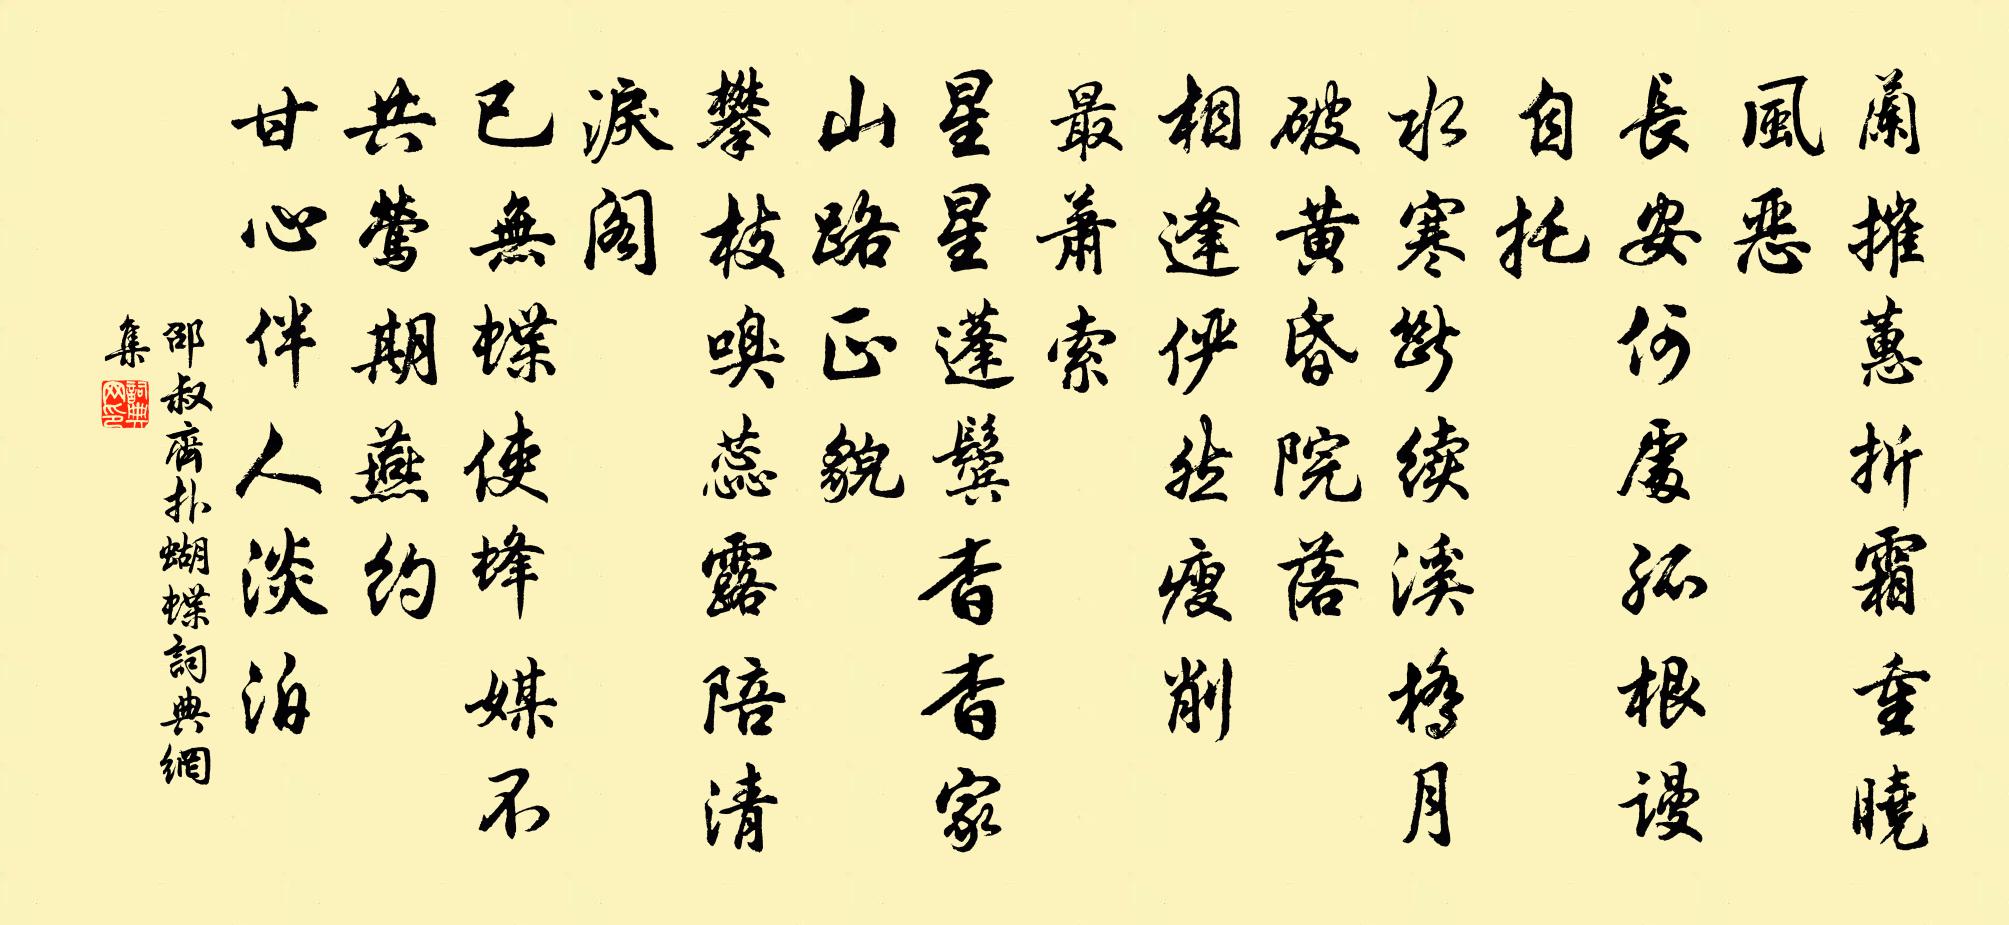 蘭摧蕙折霜重曉
風惡
長安何處孤根謾
自托
水寒斷续溪橋月
破黄昏院落
相逢俨然瘦削
最蕭索
星星蓬鬢杳杳家
山路正貌
攀枝嗅蕊露陪清
淚阁
已無蝶使蜂媒不
共鶯期燕約
甘心伴人淡泊
邵叔齊扑蝴蝶詞典網
集
詞典網印